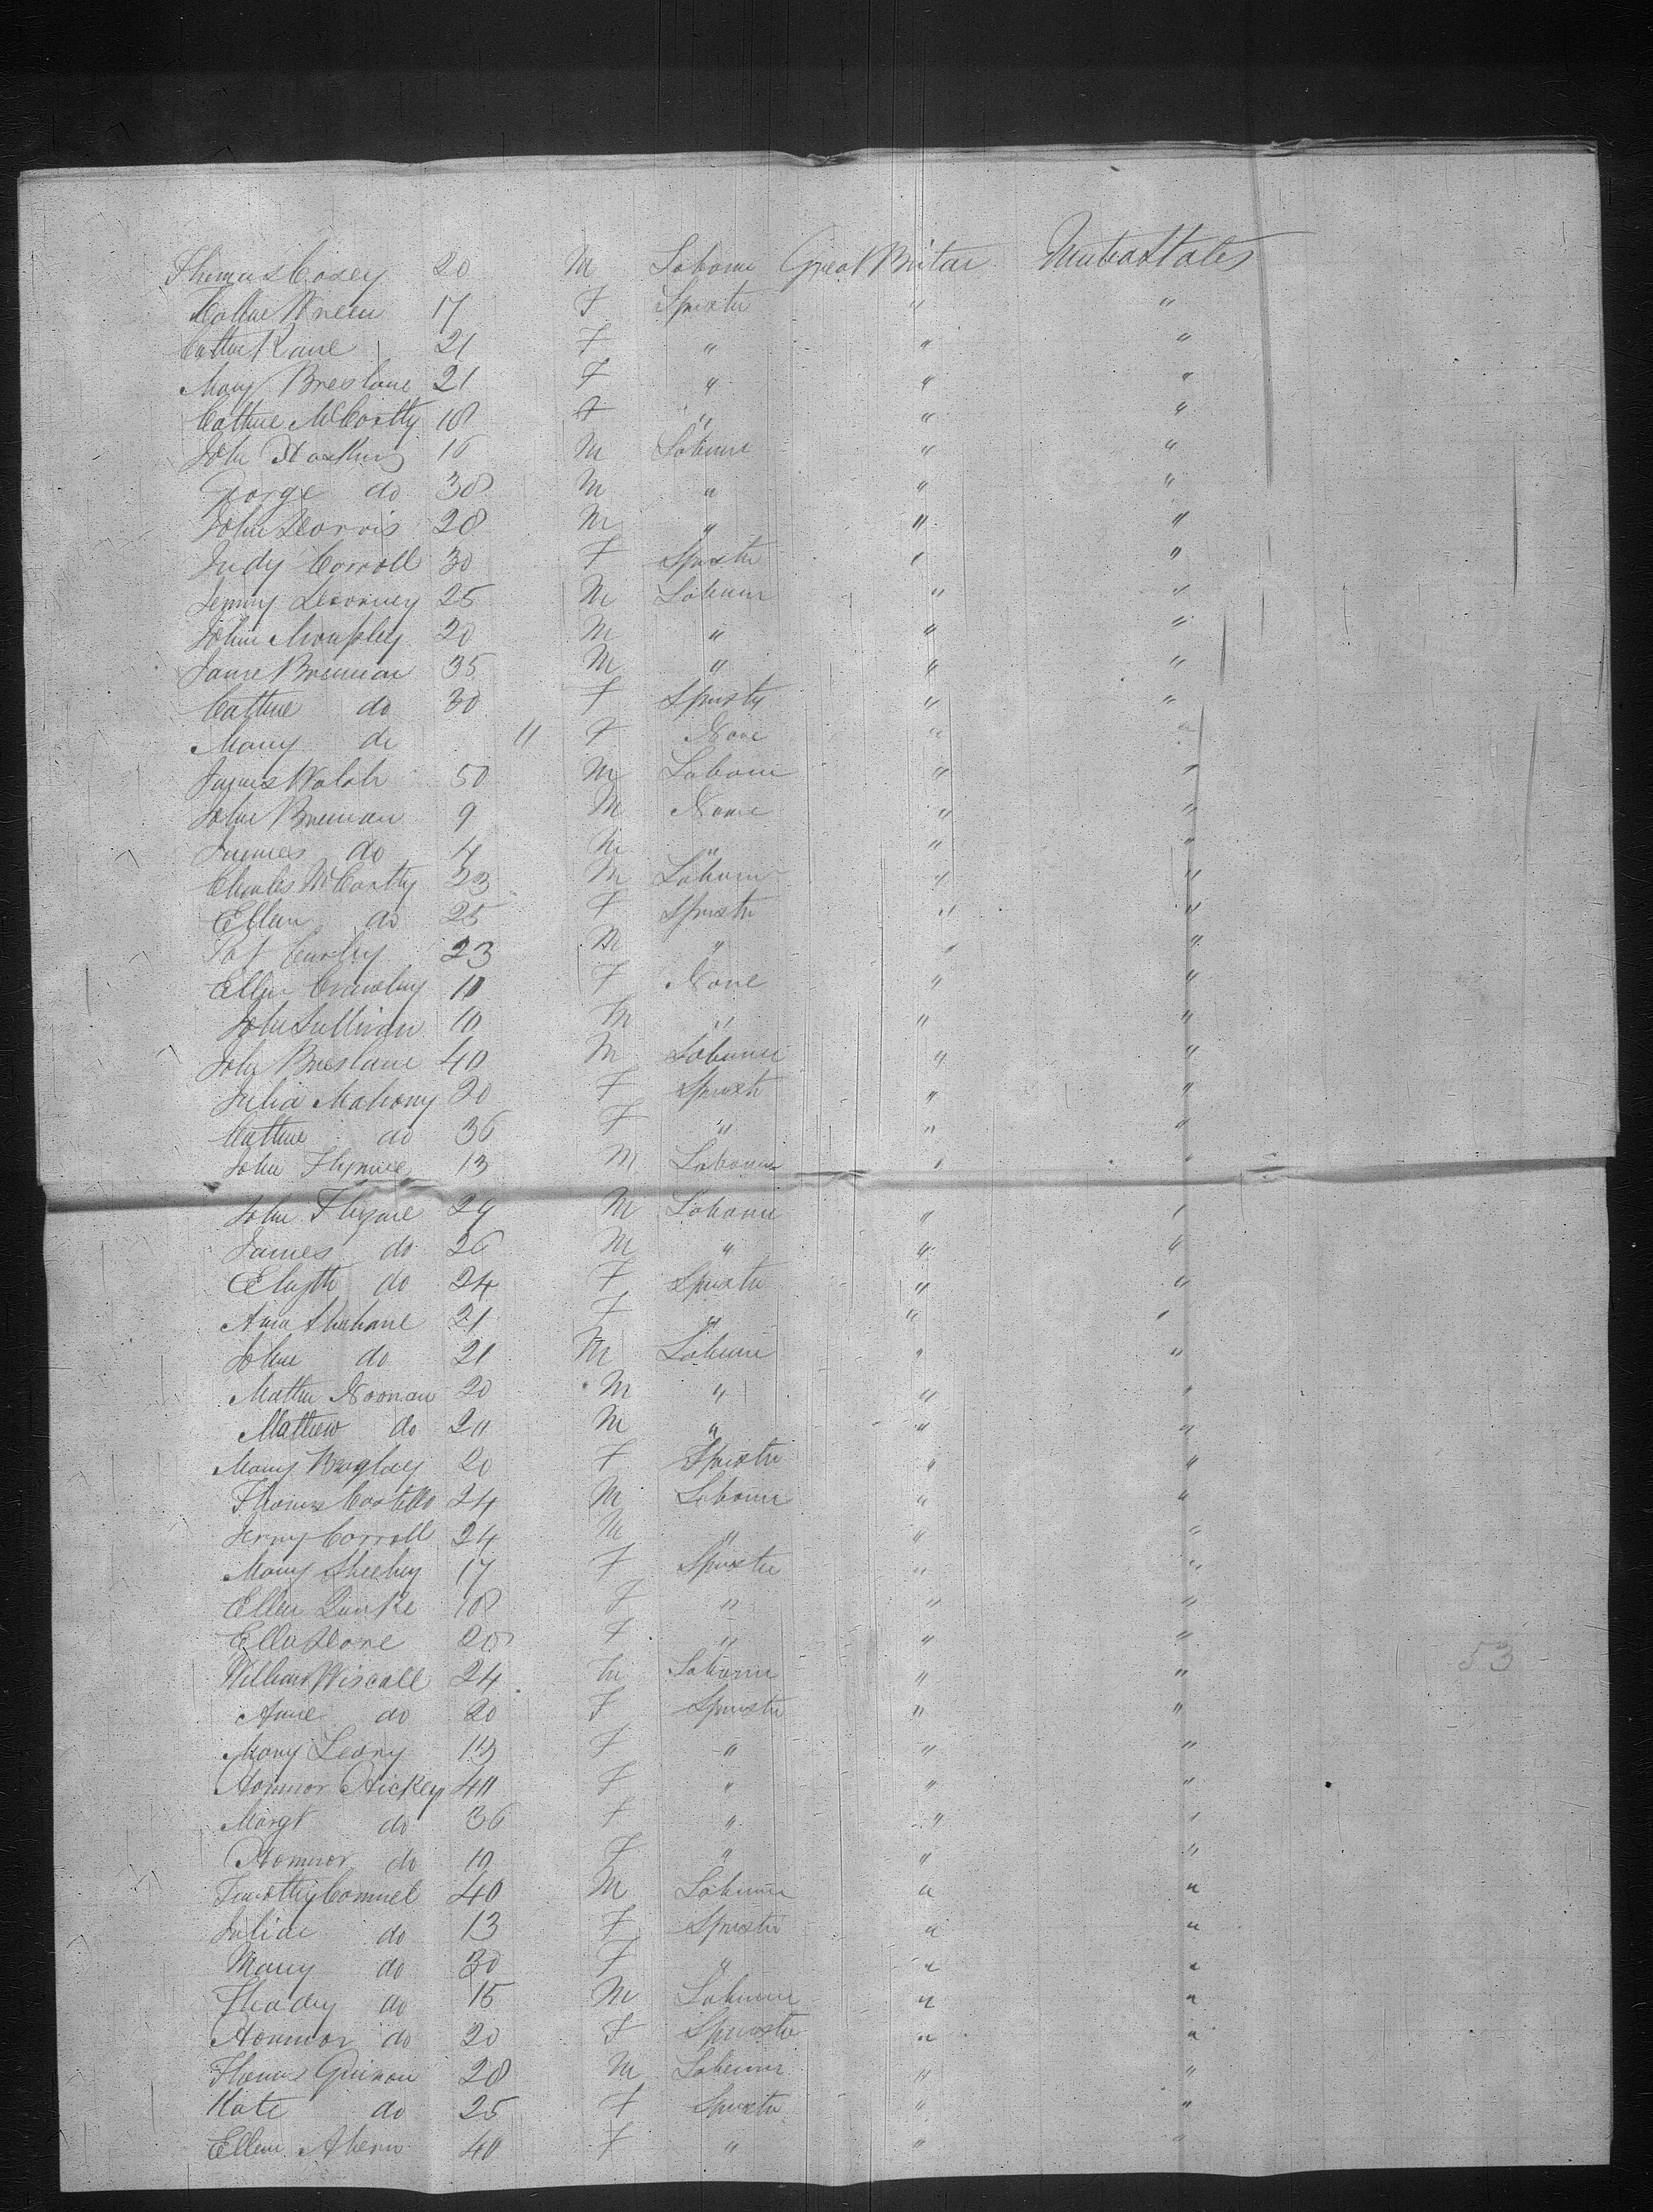 Thomas Casey 20 M Laborer Great Britain United States
Cathne Breen 17 F Spinster " "
Cathne Kane 21 F " " "
Mary Breslane 21 F " " "
Cathne McCartty 18 F " " "
John Haskins 16 M Laborer " "
George do 38 M " " "
John Harris 28 M " " "
Judy Carroll 30 F Spinster " "
25 M Laborer " "
John 20 M " " "
James Brennan 35 M " " "
Cathne do 30 F Spinster " "
Mary do 11 F None " "
James Walsh 50 M Laborer " "
John Brennan 9 M None " "
James do 4 M " " "
Charles McCartty 23 M Laborer " "
Ellen do 25 F Spinster " "
Pat Curley 23 M " " "
Ellen Crawley 10 F None " "
John Sullivan 10 M " " "
John Breslane 40 M Laborer " "
Julia Mahony 20 F Spinster " "
Cathne do 36 F " " "
John Flynne 13 M Laborer " "
John Flynne 29 M Laborer " "
James do 26 M " " "
Elizth do 24 F Spinster " "
Ann Shehane 21 F " " "
John do 21 M Laborer " "
Noonan 20 M " " "
Mathew do 20 M " " "
Mary 20 F Spinster " "
Thomas Costello 24 M Laborer " "
Jerry Carroll 24 M " " "
Mary Sheehy 17 F Spinster " "
Ellen 18 F " " "
Ellen Hore 20 F " " "
53
William Wiscall 24 M Laborer " "
Anne do 20 F Spinster " "
Mary Leary 13 F " " "
Honnor Hickey 40 F " " "
Margt do 36 F " " "
Honnor do 10 F " " "
Timothy Connel 40 M Laborer " "
Julia do 13 F Spinster " "
Mary do 30 F " " "
Thady do 15 M Laborer " "
Honnor do 20 F Spinster " "
Thomas Guinan 28 M Laborer " "
Kate do 25 F Spinster " "
Ellen Ahern 40 F " " "